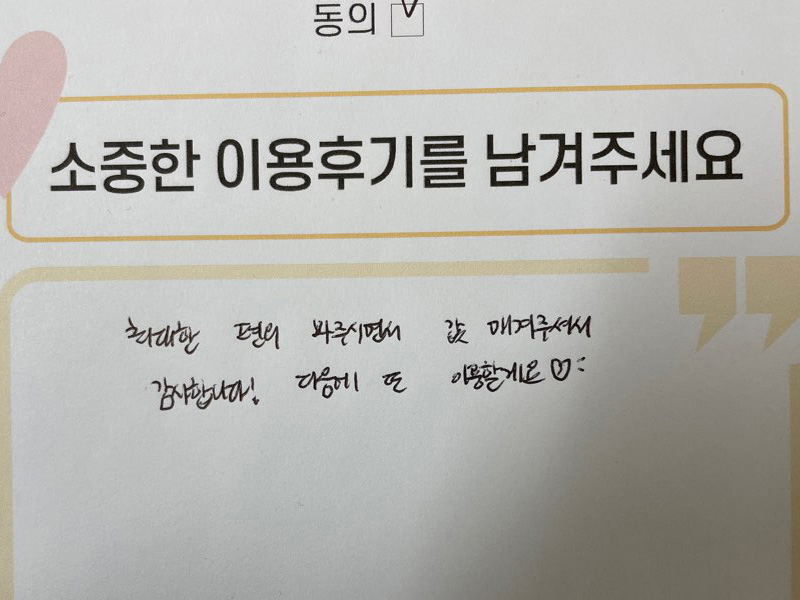 동의
소중한 이용후기를 남겨주세요
최대한 편의 봐주시면서 값 매겨주셔서
감사합니다! 다음에 또 이용할게요♡: